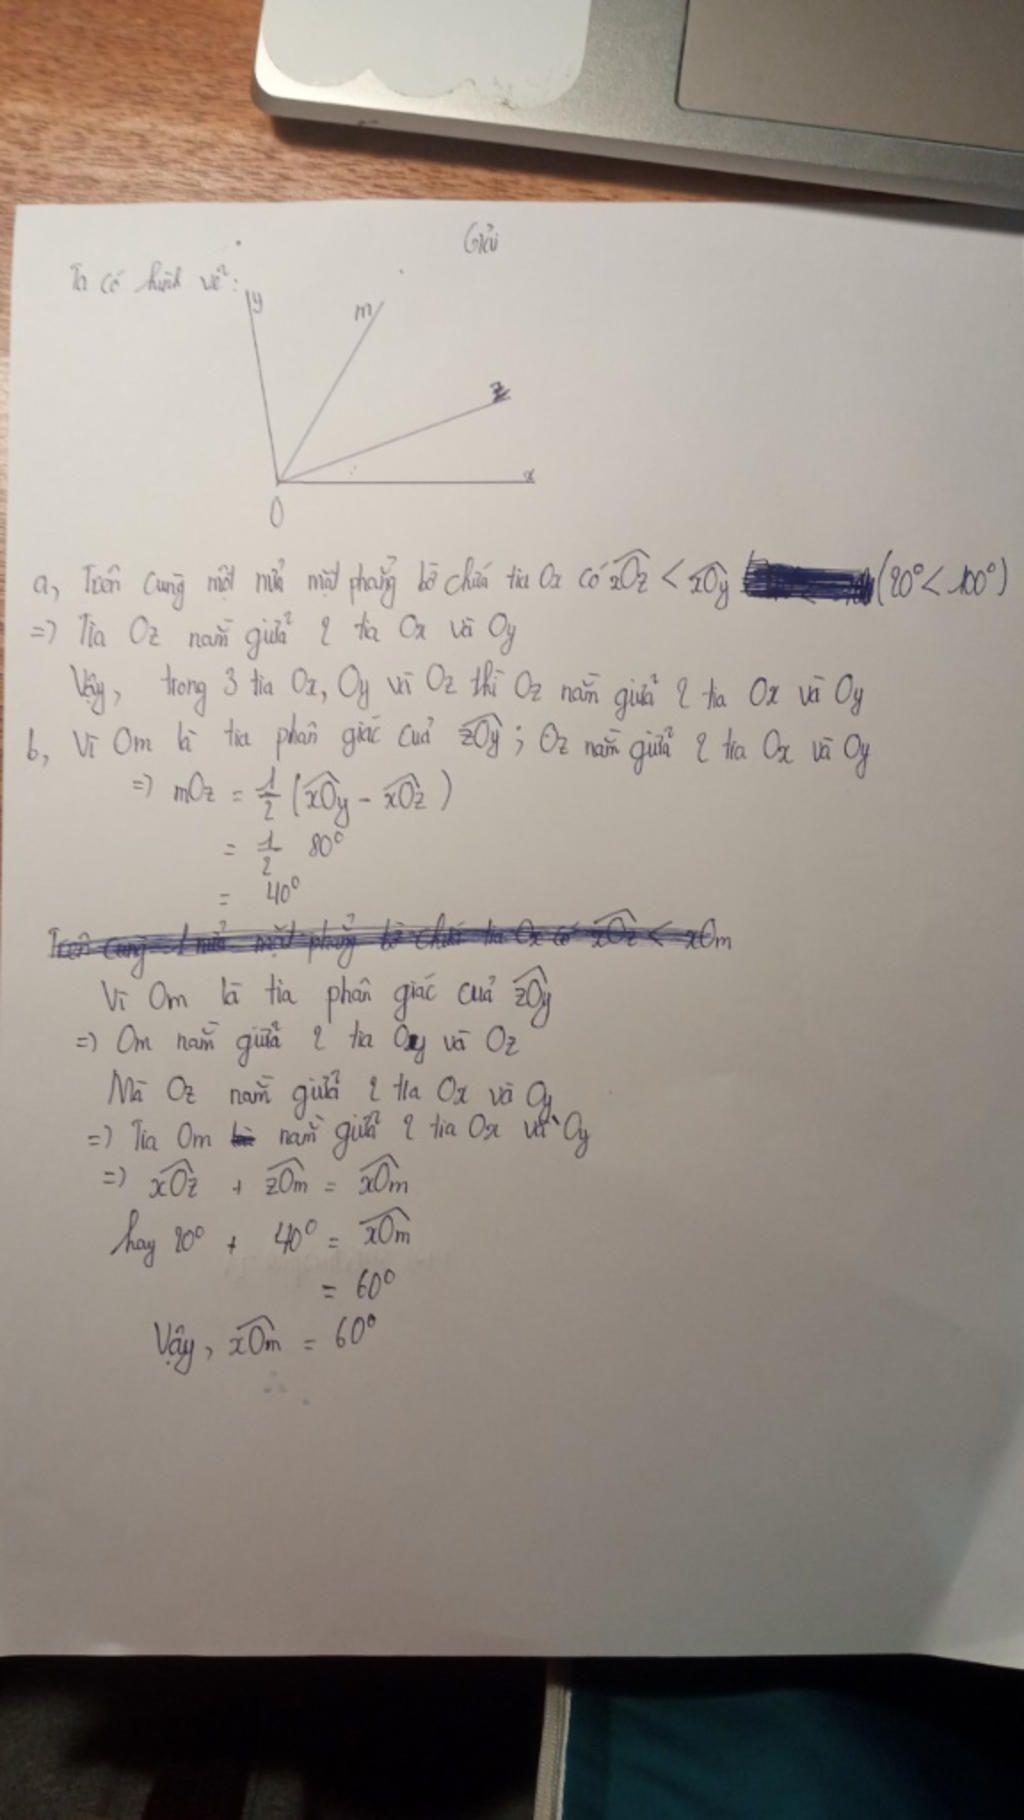 Giải
Ta có hình vẽ:
y
m
z
x
O
a, Trên cùng một nửa mặt phẳng bờ chứa tia Ox có xOz < xOy (20° < 100°)
=> Tia Oz nằm giữa 2 tia Ox và Oy
Vậy, trong 3 tia Ox, Oy và Oz thì Oz nằm giữa 2 tia Ox và Oy
b, Vì Om là tia phân giác của zOy ; Oz nằm giữa 2 tia Ox và Oy
=> mOz = 1/2 (xOy - xOz)
= 1/2 80°
= 40°
Trên cùng 1 nửa mặt phẳng bờ chứa tia Ox có xOz < xOm
Vì Om là tia phân giác của zOy
=> Om nằm giữa 2 tia Oy và Oz
Mà Oz nằm giữa 2 tia Ox và Oy
=> Tia Om nằm giữa 2 tia Ox và Oy
=> xOz + zOm = xOm
hay 20° + 40° = xOm
= 60°
Vậy, xOm = 60°